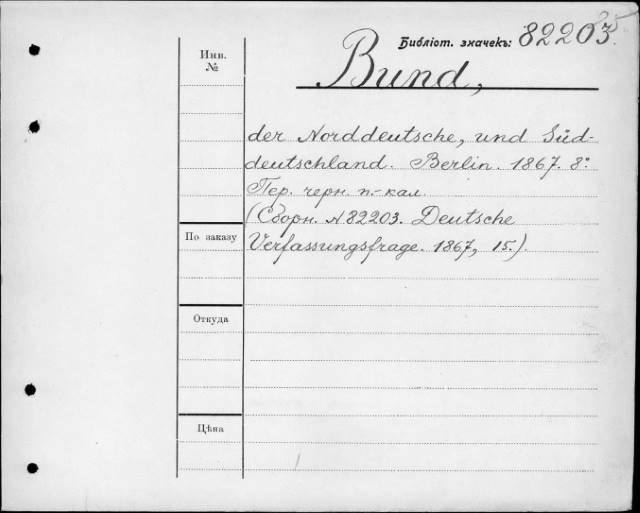 Библіот. значекъ: 82203.
Инв.
№
Bund,
der Norddeutsche, und Süd-
deutschland. Berlin. 1867. 8°.
Пер. черн. п.-кал.
(Сборн. № 82203. Deutsche
Verfassungsfrage. 1867, 15.)
По заказу
Откуда
Цѣна